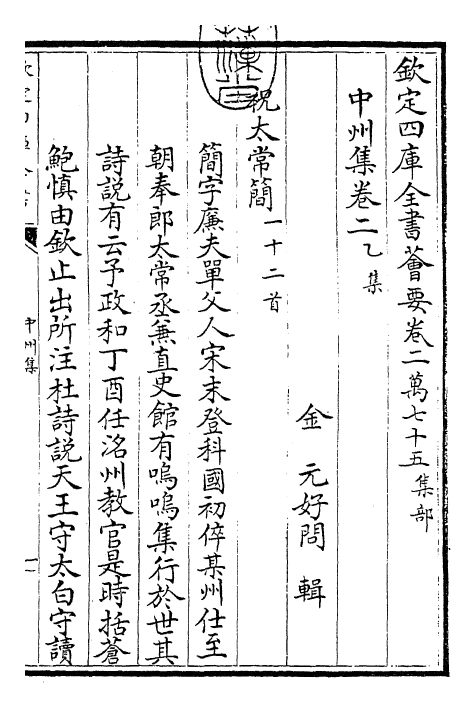 欽定四庫全書薈要卷二萬七十五集部
中州集卷二乙集
金 元好問 輯
祝太常簡一十二首
簡字廉夫單父人宋末登科國初倅某州仕至
朝奉郎太常丞兼直史館有嗚嗚集行於世其
詩説有云予政和丁酉任洺州教官是時括蒼
鮑慎由欽止出所注杜詩説天王守太白守讀
中州集
一